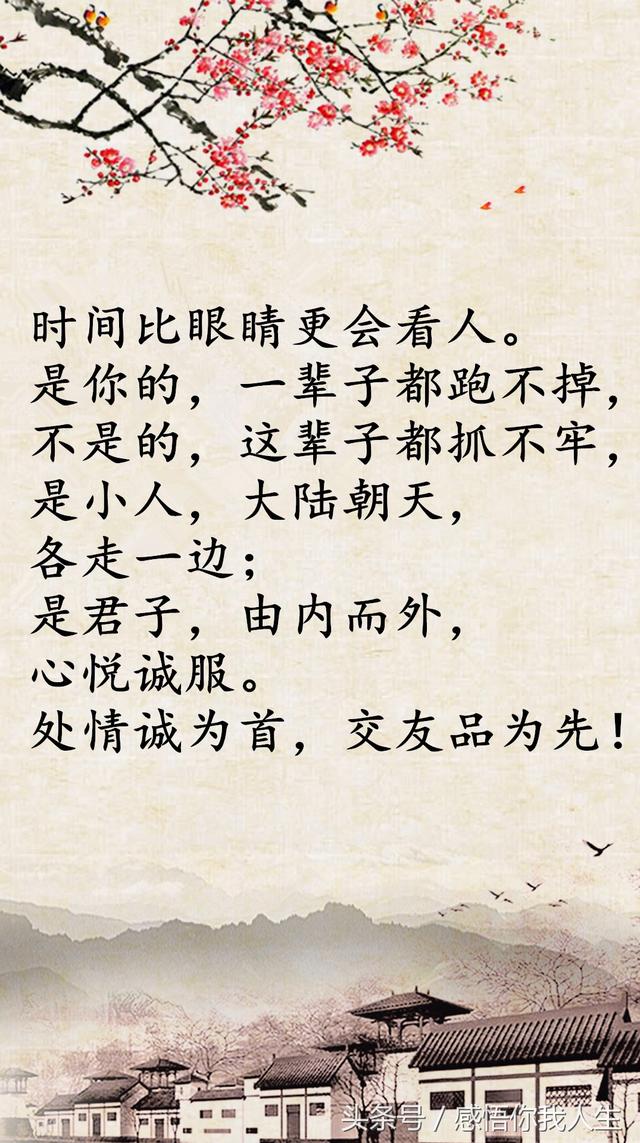 时间比眼睛更会看人。
是你的，一辈子都跑不掉，
不是的，这辈子都抓不牢，
是小人，大陆朝天，
各走一边；
是君子，由内而外，
心悦诚服。
处情诚为首，交友品为先！
头条号 / 感悟你我人生